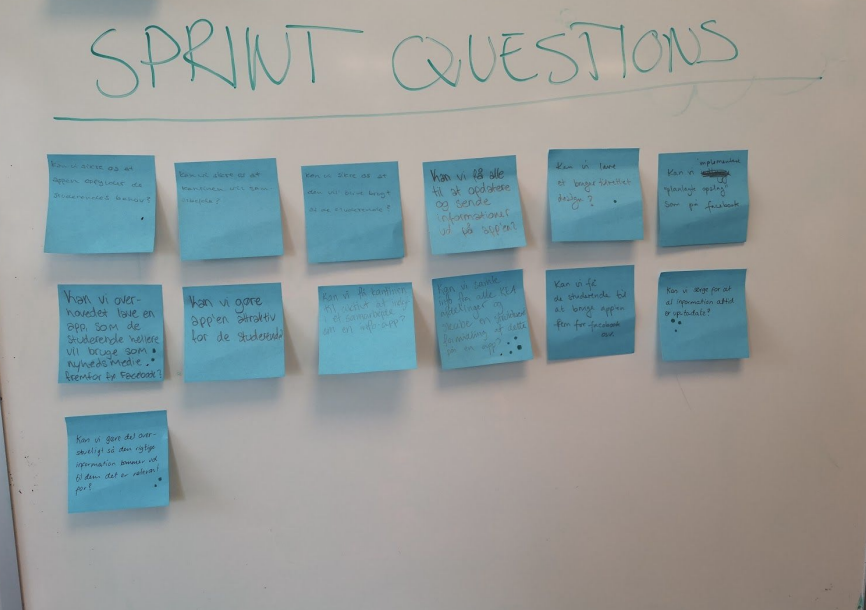 SPRINT QUESTIONS
Kan vi sikre os at
app'en opfylder de
studerendes behov?
Kan vi sikre os at
kantinen vil
Kan vi sikre os at
den vil blive brugt
af de studerende?
Kan vi få alle
til at opdatere
og sende
informationer
ud på app'en?
Kan vi lave
et bruger venligt
design?
implementere
Kan vi
planlagte opslag?
som på facebook
Kan vi over-
hovedet lave en
app som de
studerende hellere
vil bruge som
nyheds medie
fremfor fx Facebook?
Kan vi gøre
app'en attraktiv
for de studerende
Kan vi få kantinen
til
et samarbejde
om en app?
Kan vi samle
info fra alle
afdelinger og
skabe en
formation af dette
på en app?
Kan vi få
de studerende til
at bruge app'en
frem for facebook
Kan vi sørge for at
al information altid
er up to date?
Kan vi gøre det over-
skueligt så den rigtige
information kommer ud
til dem det er relevant
for?